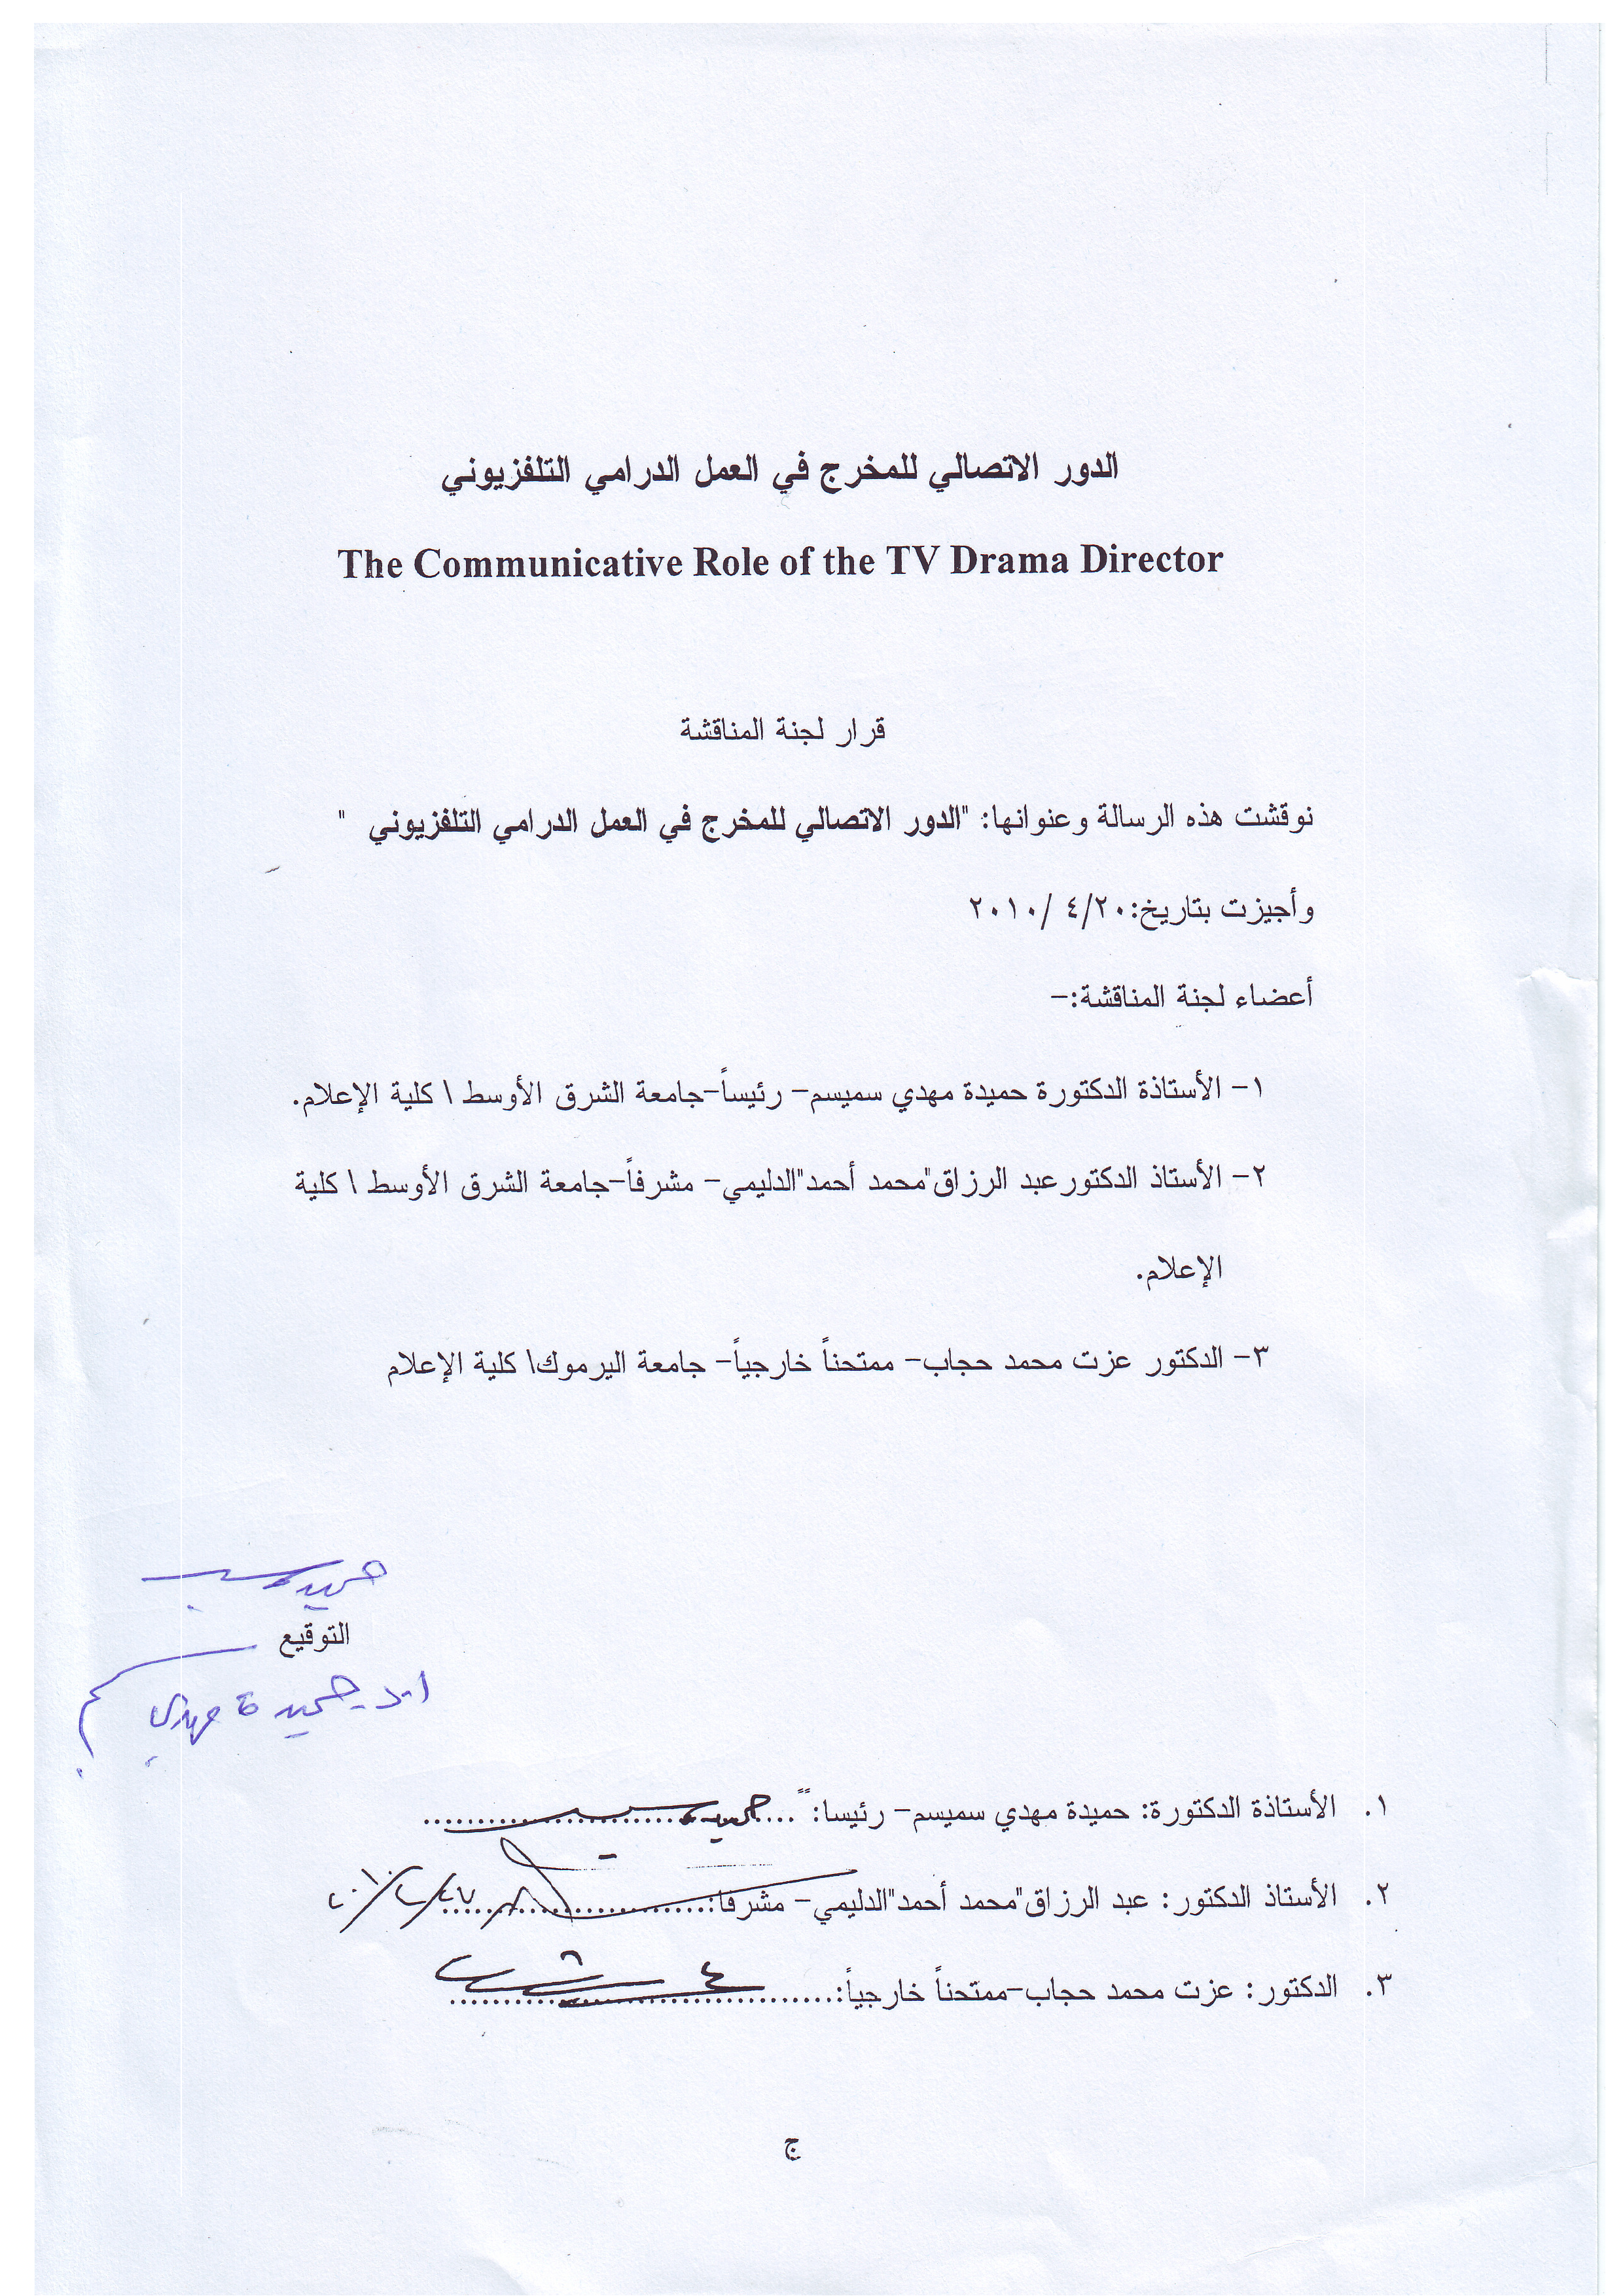 الدور الاتصالي للمخرج في العمل الدرامي التلفزيوني
The Communicative Role of the TV Drama Director
قرار لجنة المناقشة
نوقشت هذه الرسالة وعنوانها: "الدور الاتصالي للمخرج في العمل الدرامي التلفزيوني "
وأجيزت بتاريخ:٢٠/٤ /٢٠١٠
أعضاء لجنة المناقشة:–
١– الأستاذة الدكتورة حميدة مهدي سميسم– رئيساً–جامعة الشرق الأوسط \ كلية الإعلام.
٢– الأستاذ الدكتورعبد الرزاق"محمد أحمد"الدليمي– مشرفاً–جامعة الشرق الأوسط \ كلية
الإعلام.
٣– الدكتور عزت محمد حجاب– ممتحناً خارجياً– جامعة اليرموك\ كلية الإعلام
التوقيع
ا.د. حميدة مهدي
١. الأستاذة الدكتورة: حميدة مهدي سميسم– رئيسا:ً
٢. الأستاذ الدكتور: عبد الرزاق"محمد أحمد"الدليمي– مشرفا:
٣. الدكتور: عزت محمد حجاب–ممتحناً خارجياً:
ج